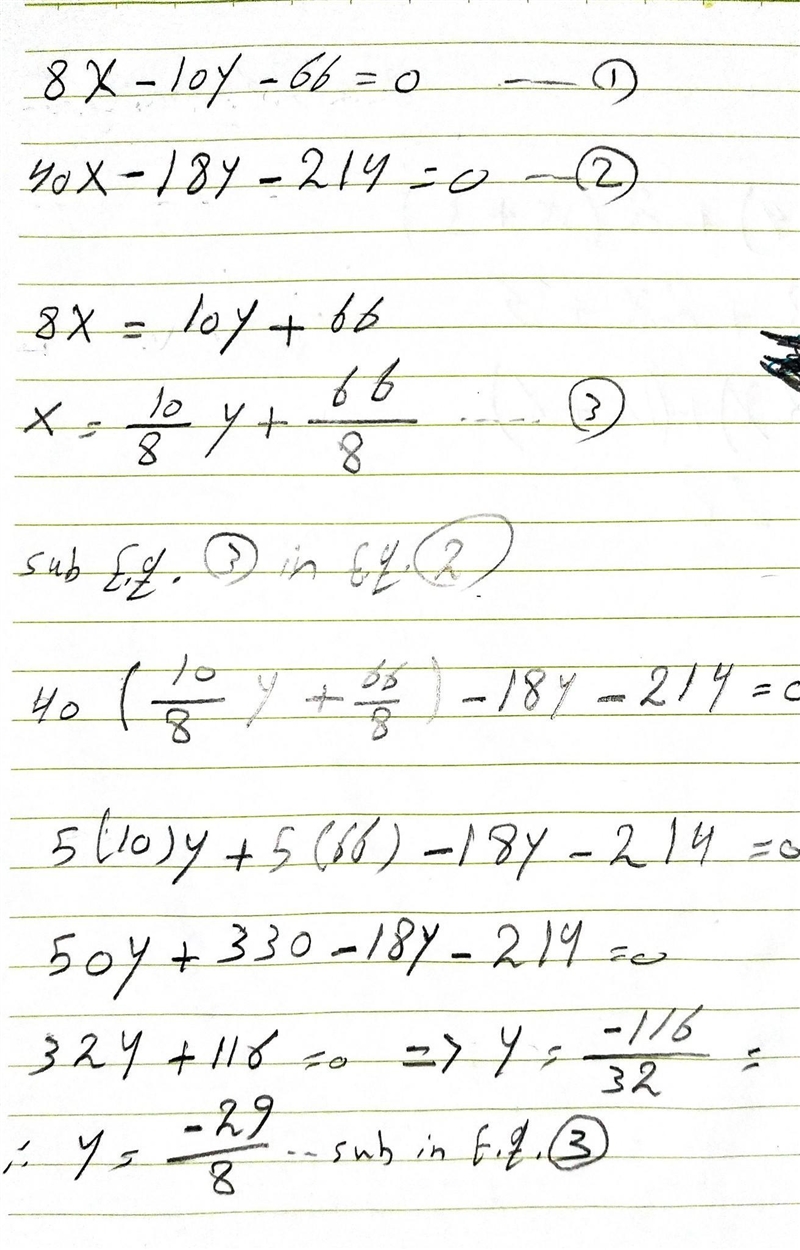 8X - 10Y - 66 = 0 —— ①
40X - 18Y - 214 = 0 — ②
8X = 10Y + 66
X = 10/8 Y + 66/8 ...... ③
sub E.q. ③ in E.q. ②
40 (10/8 Y + 66/8) - 18Y - 214 = 0
5(10)Y + 5(66) - 18Y - 214 = 0
50Y + 330 - 18Y - 214 = 0
32Y + 116 = 0 => Y = -116/32 =
∴ Y = -29/8 ... sub in E.q. ③